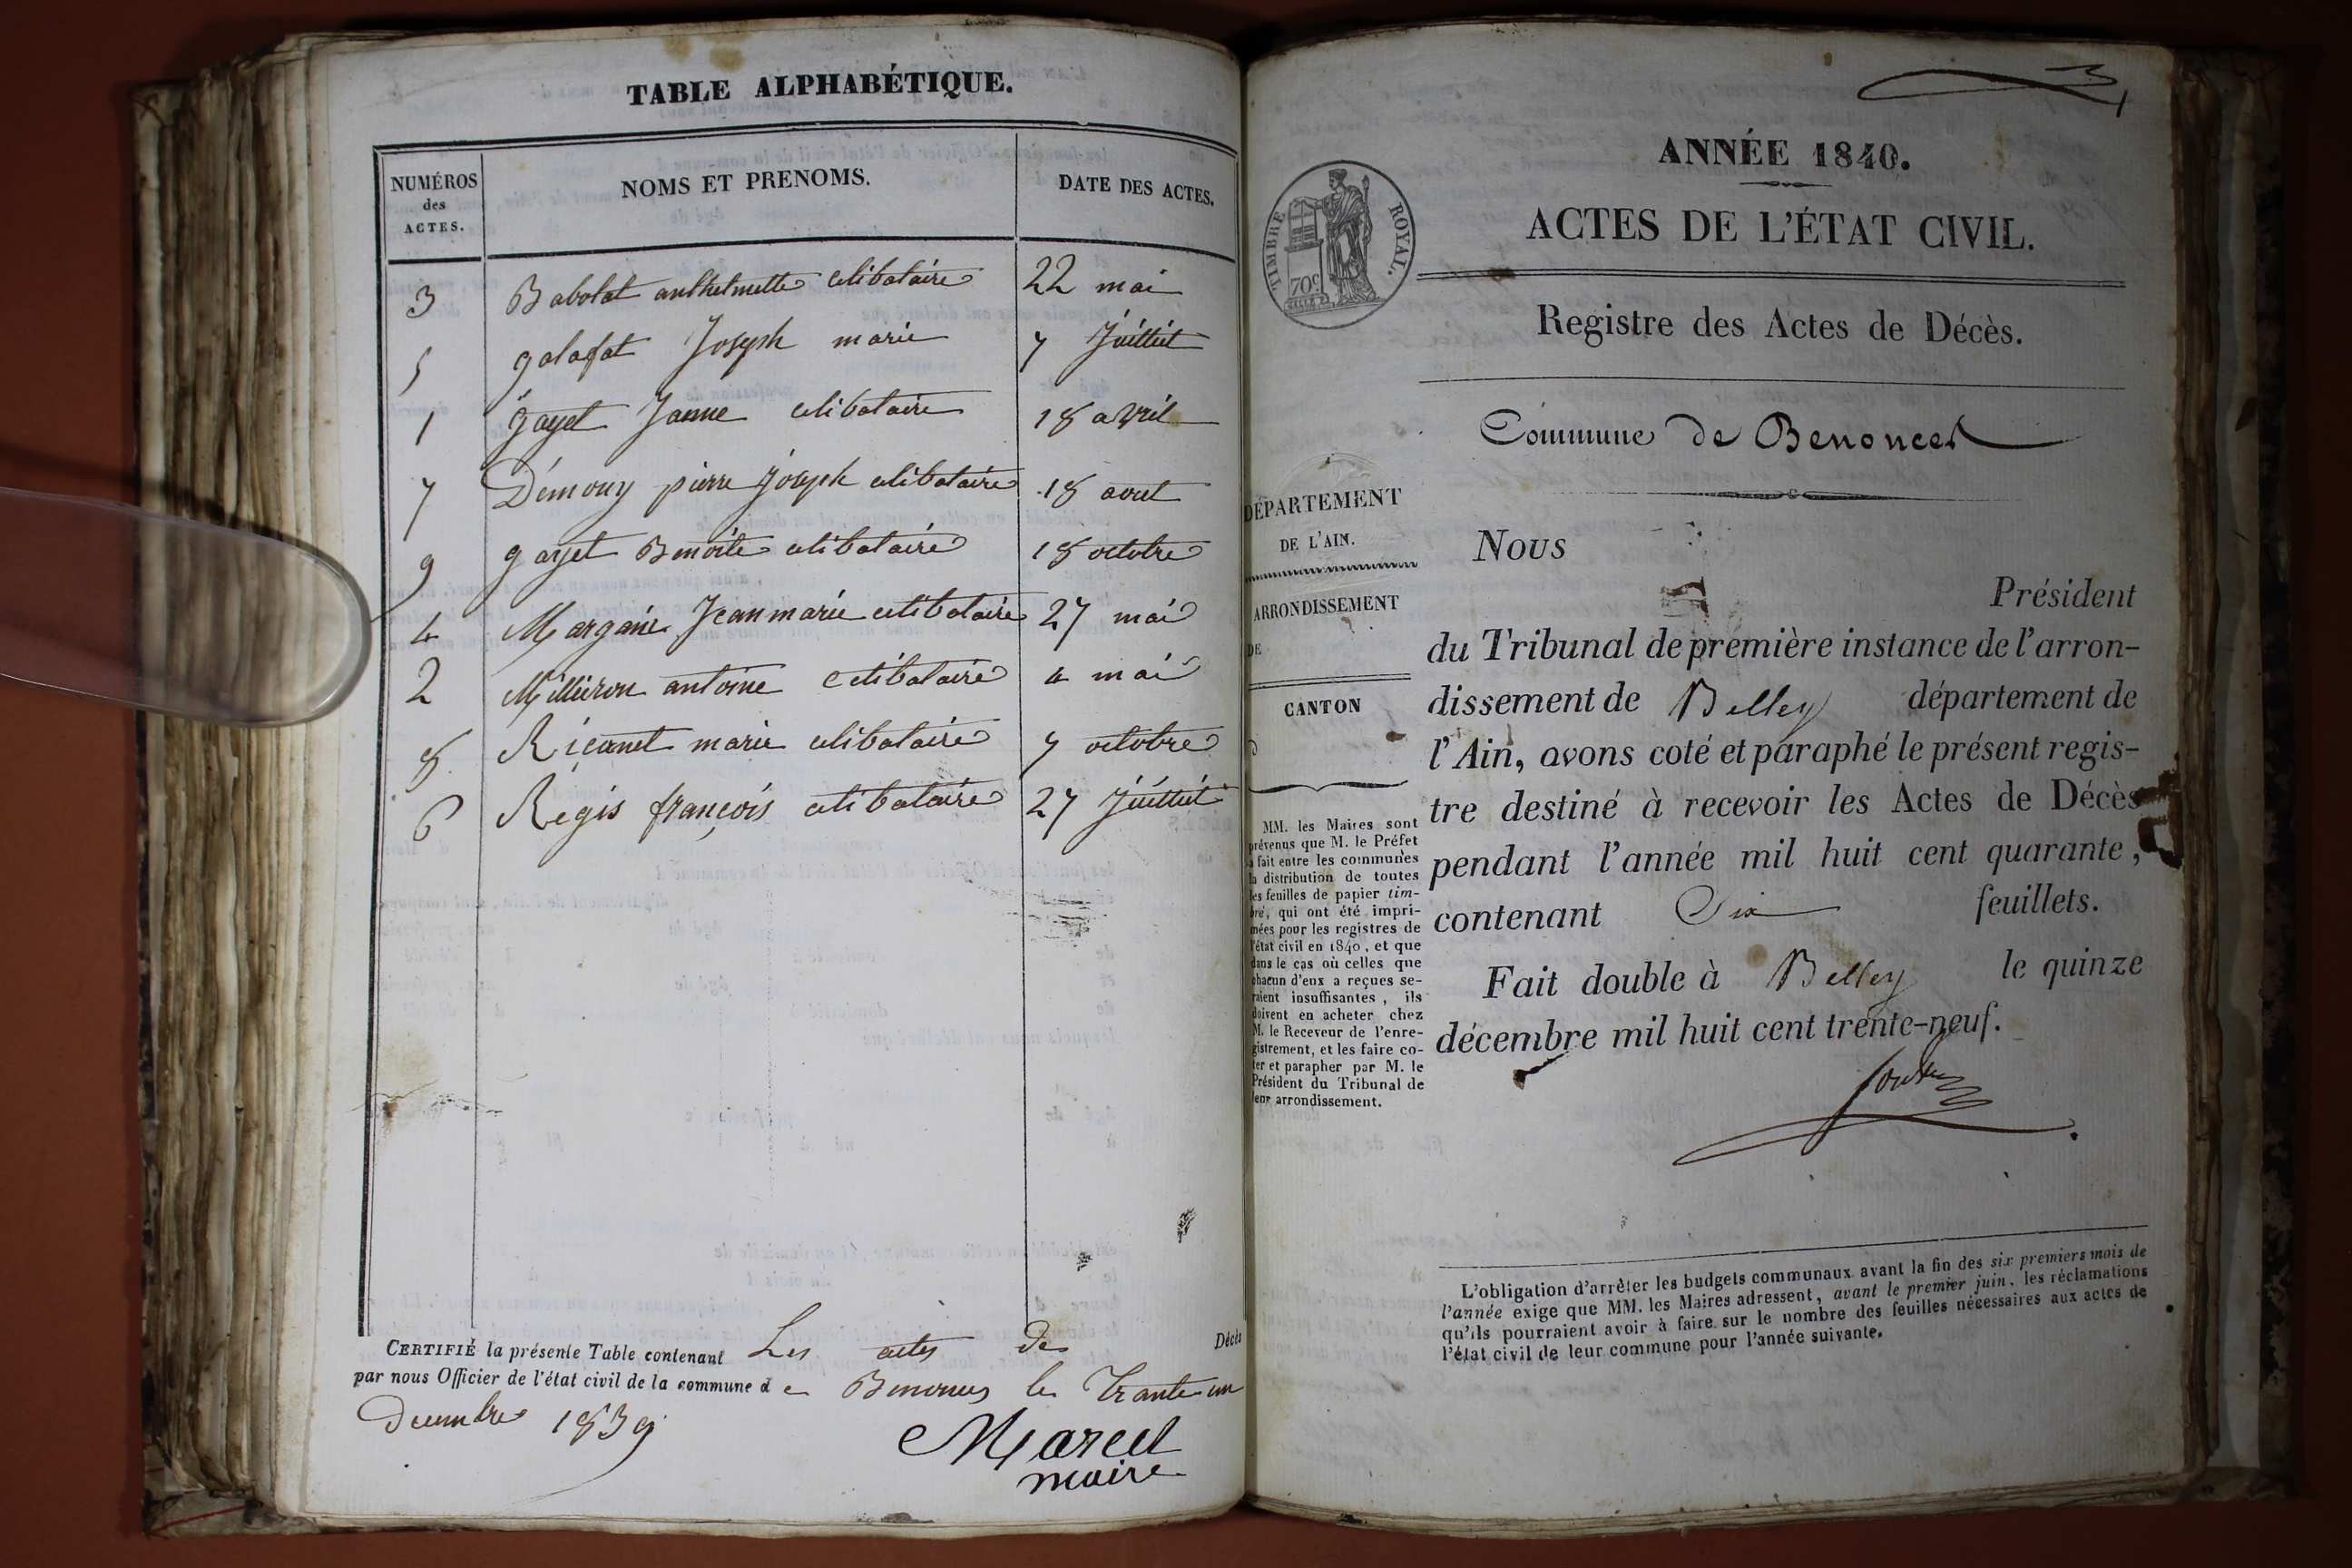 TABLE ALPHABÉTIQUE.
NUMÉROS
des
ACTES.
NOMS ET PRENOMS.
DATE DES ACTES.
3 Babolat anthelmette celibataire 22 mai
5 galafat Joseph marie 7 Juillet
1 Gayet Janne celibataire 18 avril
7 Démony pierre joseph celibataire 18 aout
9 gayet Benoite celibataire 18 octobre
4 Jean marie celibataire 27 mai
2 Milliron antoine celibataire 4 mai
8 marie celibataire 7 octobre
6 Régis françois celibataire 27 Juillet
CERTIFIÉ la présente Table contenant Les actes de Décès
par nous Officier de l'état civil de la commune de Benonces le Trante un
decembre 1839
Marcel
maire
ANNÉE 1840.
ACTES DE L'ÉTAT CIVIL.
TIMBRE ROYAL.
70c
Registre des Actes de Décès.
Commune de Benonces
DÉPARTEMENT
DE L'AIN.
ARRONDISSEMENT
DE
CANTON
MM. les Maires sont
prévenus que M. le Préfet
a fait entre les communes
la distribution de toutes
les feuilles de papier tim-
bré, qui ont été impri-
mées pour les registres de
l'état civil en 1840, et que
dans le cas où celles que
chacun d'eux a reçues se-
raient insuffisantes, ils
doivent en acheter chez
M. le Receveur de l'enre-
gistrement, et les faire co-
ter et parapher par M. le
Président du Tribunal de
leur arrondissement.
Nous
Président
du Tribunal de première instance de l'arron-
dissement de Belley département de
l'Ain, avons coté et paraphé le présent regis-
tre destiné à recevoir les Actes de Décès
pendant l'année mil huit cent quarante,
contenant Six feuillets.
Fait double à Belley le quinze
décembre mil huit cent trente-neuf.
L'obligation d'arrêter les budgets communaux avant la fin des six premiers mois de
l'année exige que MM. les Maires adressent, avant le premier juin, les réclamations
qu'ils pourraient avoir à faire sur le nombre des feuilles nécessaires aux actes de
l'état civil de leur commune pour l'année suivante.